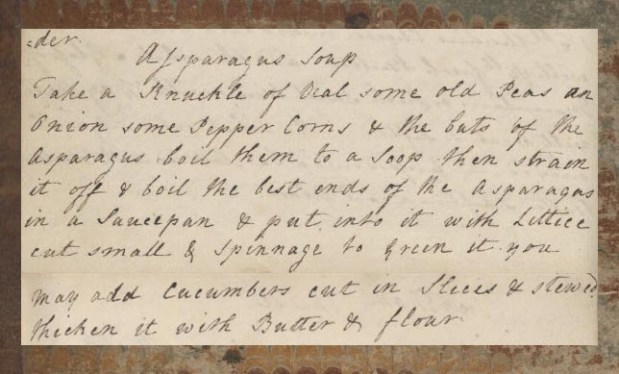 =der.
Asparagus Soup
Take a Knuckle of Veal some old Peas an
Onion some Pepper Corns & the buts of the
Asparagus boil them to a Soop then strain
it off & boil the best ends of the Asparagus
in a Saucepan & put into it with Lettice
cut small & Spinnage to Green it you
may add Cucumbers cut in Slices & stewed
thicken it with Butter & flour